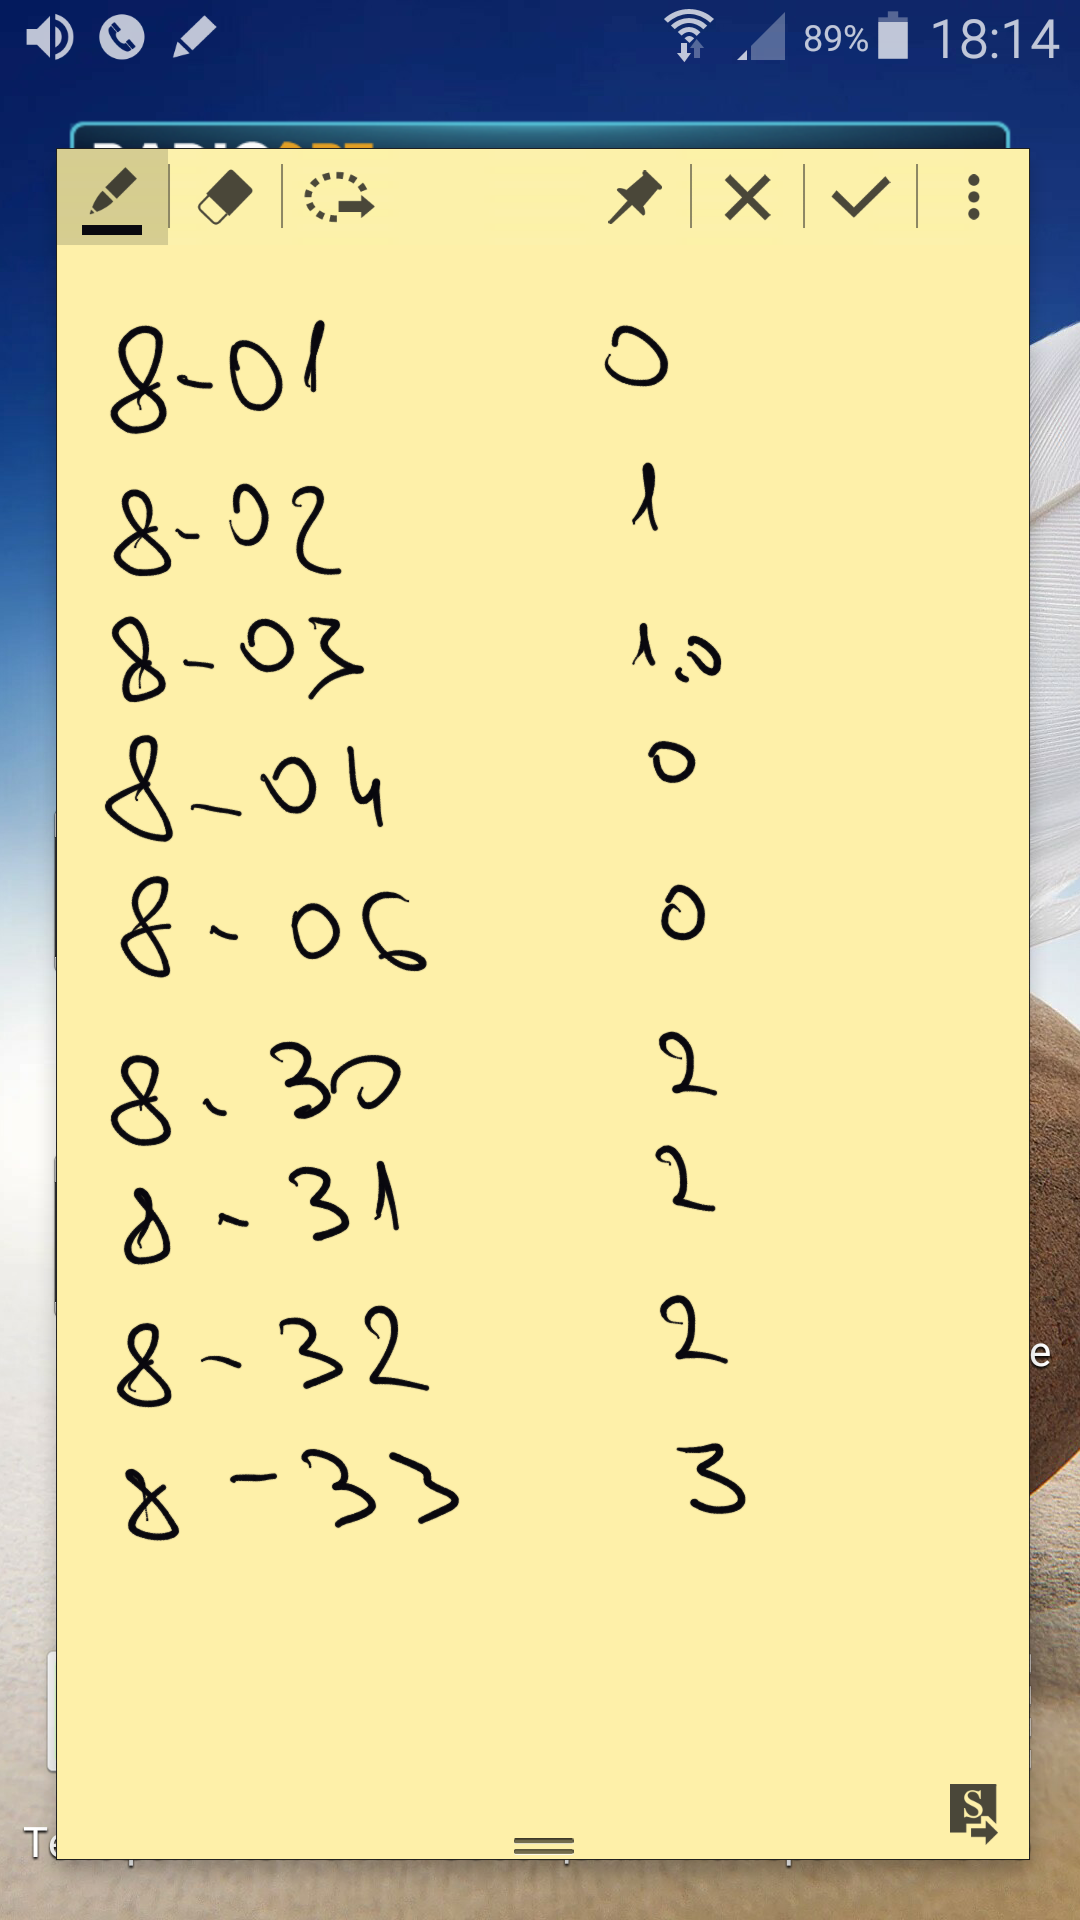 89% 18:14
8-01 0
8-02 1
8-03 1,0
8-04 0
8-06 0
8-30 2
8-31 2
8-32 2
8-33 3
e
S